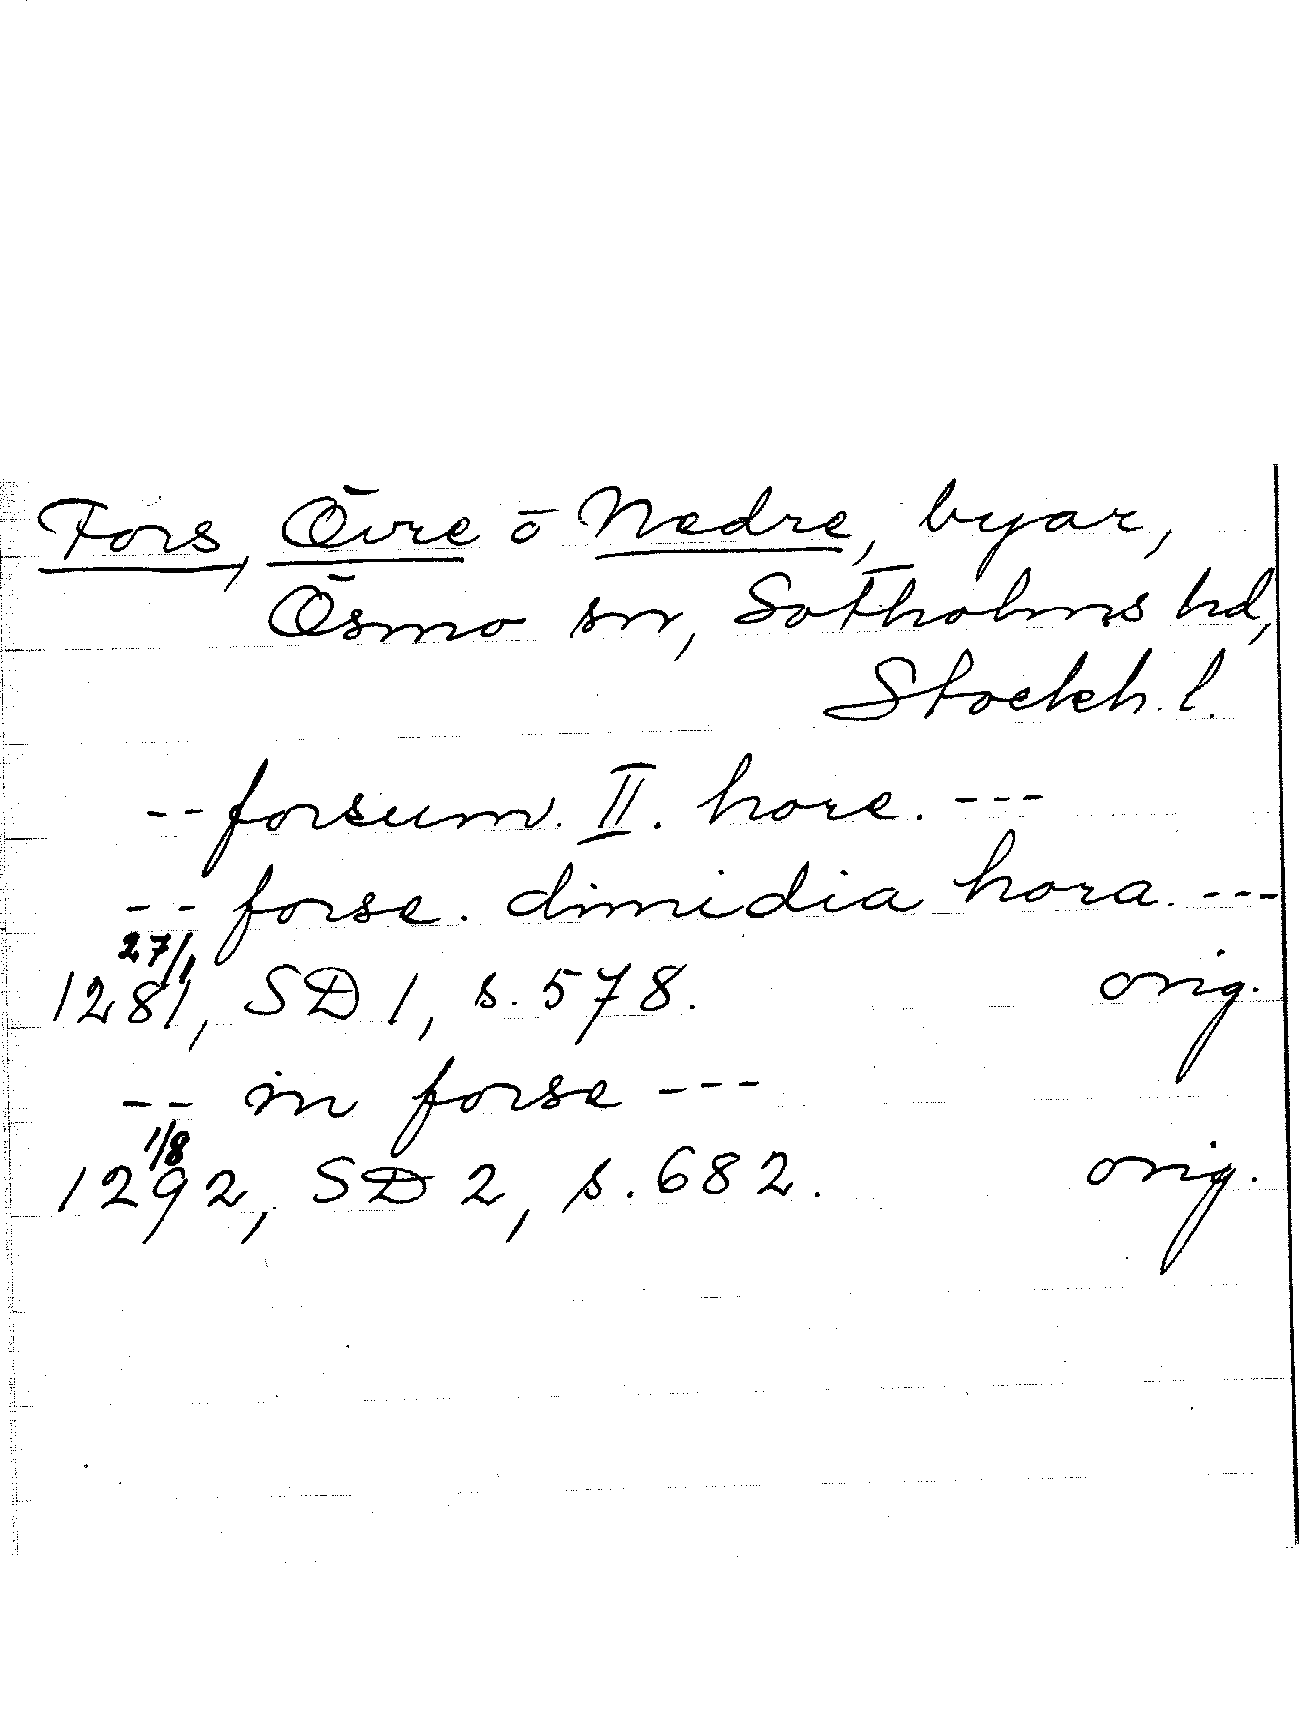 Fors, Övre o Nedre, byar,
Ösmo sn, Sotholms hd,
Stockh. l.
-- forsum. II. hore. ---
-- forse. dimidia hora. ---
27/1
1281, SD 1, s. 578. orig.
-- in forse ---
1/8
1292, SD 2, s. 682. orig.